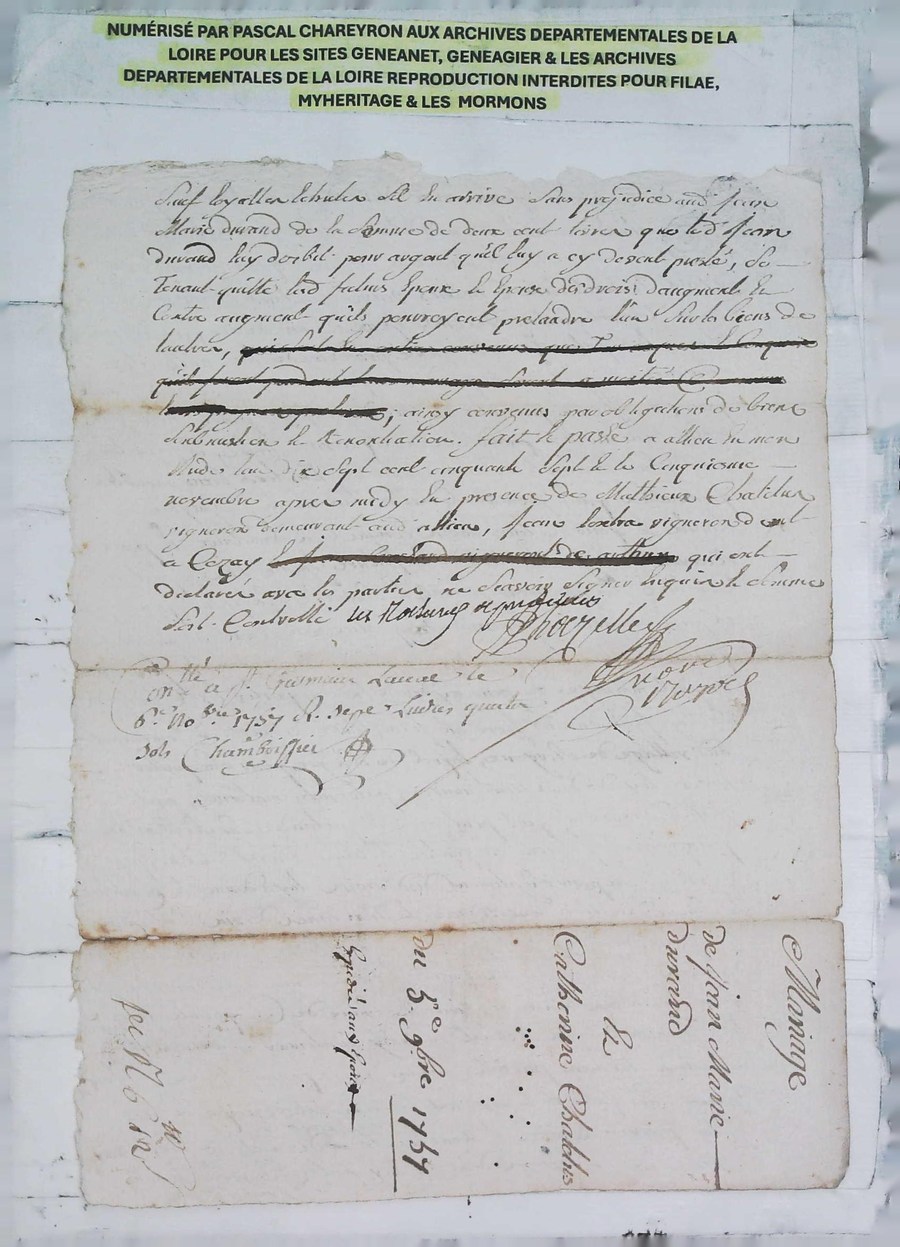 NUMÉRISÉ PAR PASCAL CHAREYRON AUX ARCHIVES DEPARTEMENTALES DE LA
LOIRE POUR LES SITES GENEANET, GENEAGIER & LES ARCHIVES
DEPARTEMENTALES DE LA LOIRE REPRODUCTION INTERDITES POUR FILAE,
MYHERITAGE & LES MORMONS
Sauf sil en arrive sans prejudice aud Jean
Marie durand de la somme de deux cent livres que led Jean
durand luy doibt pour argent qu'il luy a cy devent presté, se
Tenant quitte led futurs Epoux & Epouse des droits d'augment et
Contre augment qu'ils pouroyent pretandre l'un sur les biens de
lautre,
; ainsy convenus par obligations de biens
soubmission & Renontiation. fait & passé a allieu en mon
étude lan dix sept cent cinquante sept & le Cinquiesme
novembre apres midy en presence de Mathieux Chatelus
vigneron demeurant aud allieu, Jean vigneron demt
a Cezay qui ont
declarés avec les parties ne scavoir signer enquis & somme
Soit Controllé les
not Royal
Conllé a St. Germain Laval le
6e. No bre 1757 R. sept Livres quatre
sols Chamboissier
Mariage
de Jean Marie
durand
&
Catherine Chatelus
du 5e 9bre 1757
Expedié aux parties